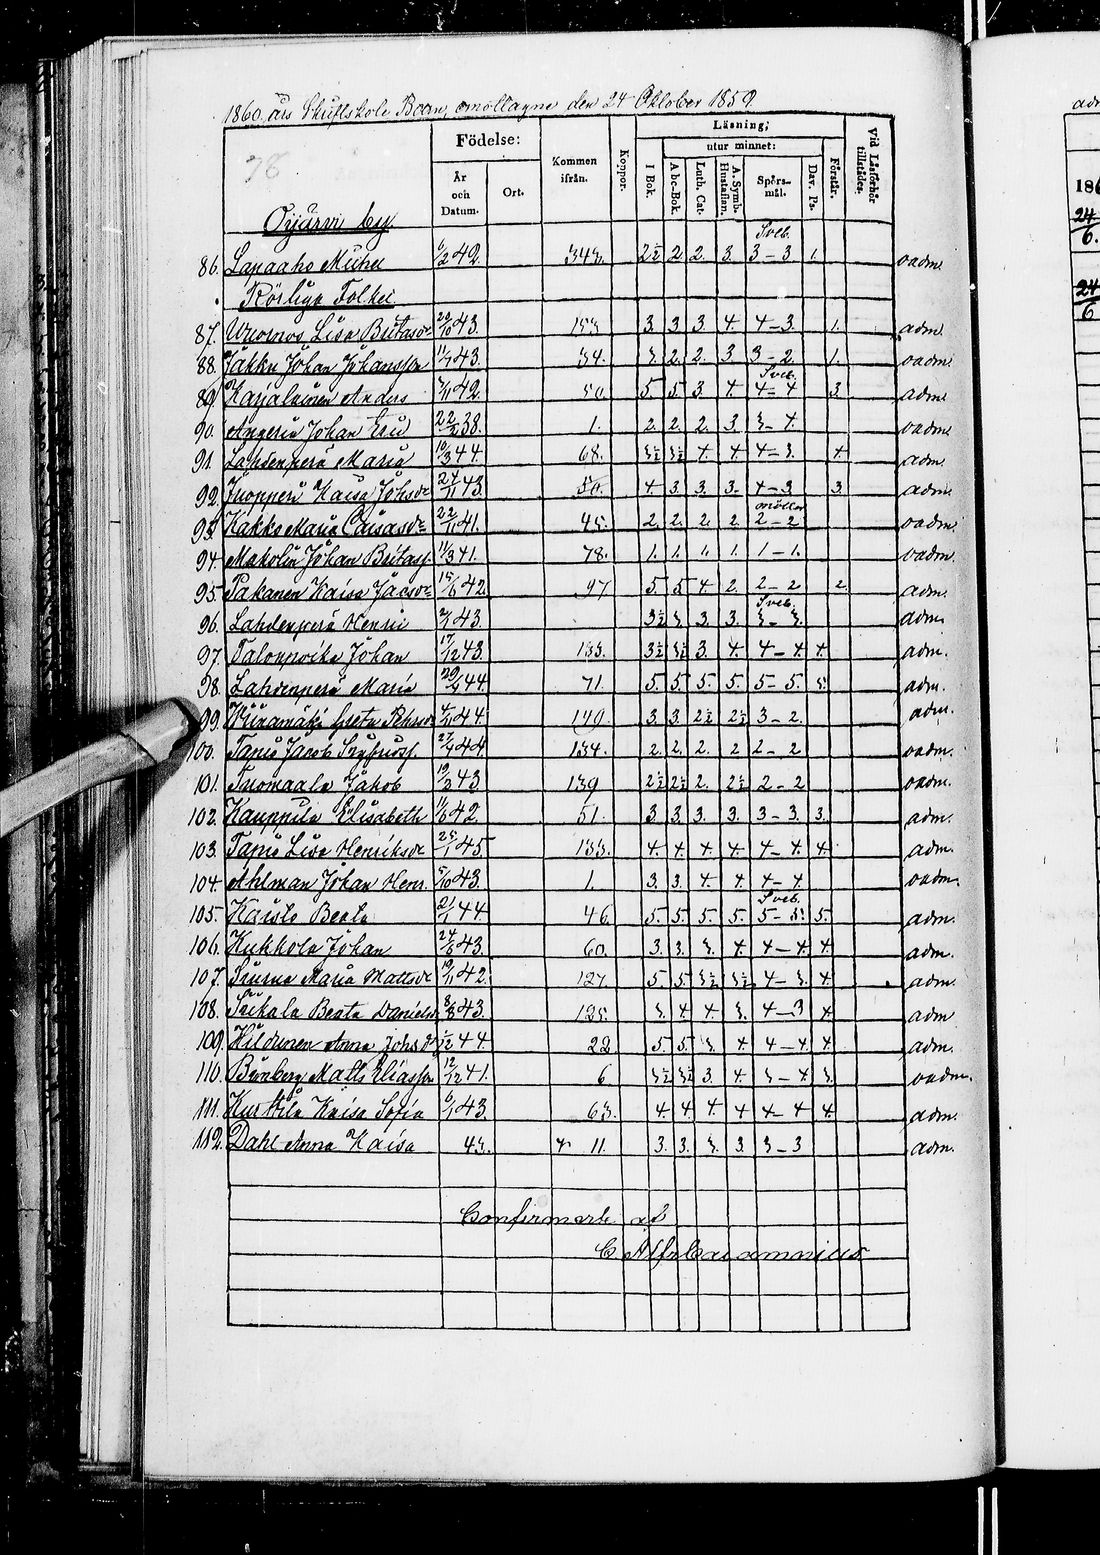 1860 års Skriftskole Barn, emottagne den 24 Oktober 1859
78
Födelse:
År och Datum.
Ort.
Kommen ifrån.
Koppor.
Läsning;
utur minnet:
I Bok.
Abc-Bok.
Luth. Cat.
A. Symb. Hustaflan.
Spörs-mål.
Dav. Ps.
Förstår.
Vid Läsförhör tillstädes.
Öyjärvi by.
86. Lapaaho Mickel 6/2 42. 343. 2½ 2. 2. 3. Sveb. 3–3 1. oadm.
Rörliga Folket
87. Wuornos Lisa Britasdr 153. 3. 3. 3. 4. 4–3. 1. adm.
88. Jakku Johan Johansson 11/7 43. 34. 3. 2. 2. 3 3–2. 1. oadm.
89. Karjalainen Anders 42. 50. 5. 5. 3. 4. Sveb. 4–4 3. adm.
90. Angeria Johan Eric 22/2 38. 1. 2. 2. 2. 3 3–4. oadm.
91. Lahdenperä Maria 10/3 44. 68. 3½ 3½ 4. 4 4–3. 4 adm.
92. Juopperi Kaisa Johsdr 24/11 43. 50. 4. 3. 3. 3. 4–3 3. adm.
93. Kakko Maria Caisasdr 22/11 41. 45. 2. 2. 2. 2. möller 2–2 oadm.
94. Makolin Johan Britass. 11/3 41. 78. 1. 1. 1. 1. 1–1. oadm.
95. Pakanen Kaisa Jacsdr 15/6 42. 97 5. 5 4. 2. 2–2 2. adm.
96. Lahdenperä Henric 43. 3½ 3. 3. 3. Sveb. 3–3. adm.
97. Talonpoika Johan 17/12 43. 133. 3½ 3½ 3. 4. 4–4. 4. adm.
98. Lahdenperä Maria 29/4 44. 71. 5. 5. 5. 5. 5–5. 5. adm.
99. Wiiramäki Greta Pehrsdr 44. 149. 3. 3. 2½ 2½ 3–2. adm.
100. Tanio Jacob Sigfridss. 27/4 44 134. 2. 2. 2. 2 2–2 oadm.
101. Tuomaala Jakob 19/3 43 139 2½ 2½ 2. 2½ 2–2 oadm.
102. Kauppila Elisabeth 11/6 42. 51. 3. 3. 3. 3. 3–3. 3. adm.
103. Tanio Lisa Henriksdr 25/1 45. 133. 4. 4. 4. 4. 4–4. 4. adm.
104. Ahlman Johan Henr. 5/10 43. 1. 3. 3. 4. 4. 4–4 oadm.
105. Kaisto Beata 21/1 44. 46. 5. 5. 5. 5. Sveb. 5–5. 5. adm.
106. Kukkola Johan 24/6 43. 60. 3. 3. 3. 4 4–4. 4. adm.
107. Maria Mattsdr 19/11 42. 127. 5. 5. 3½ 3½ 4–3. 4. adm.
108. Siikala Beata Danielsd. 8/8 43. 125. 3. 4. 4. 3. 4–3 4 adm
109. Hildunen Anna Johsdr 1/2 44. 22 5. 5. 3. 4. 4–4. 4. adm.
110. Björnberg Matts Eliasson 12/12 41. 6 3½ 3½ 3. 4. 3–4. 3. oadm.
111. Kurttila Kaisa Sofia 6/1 43. 63. 4. 4. 4. 4 4–4 4. adm.
112. Dahl Anna Kaisa 43. 11. 3. 3. 3. 3 3–3 adm.
Confirmerte af